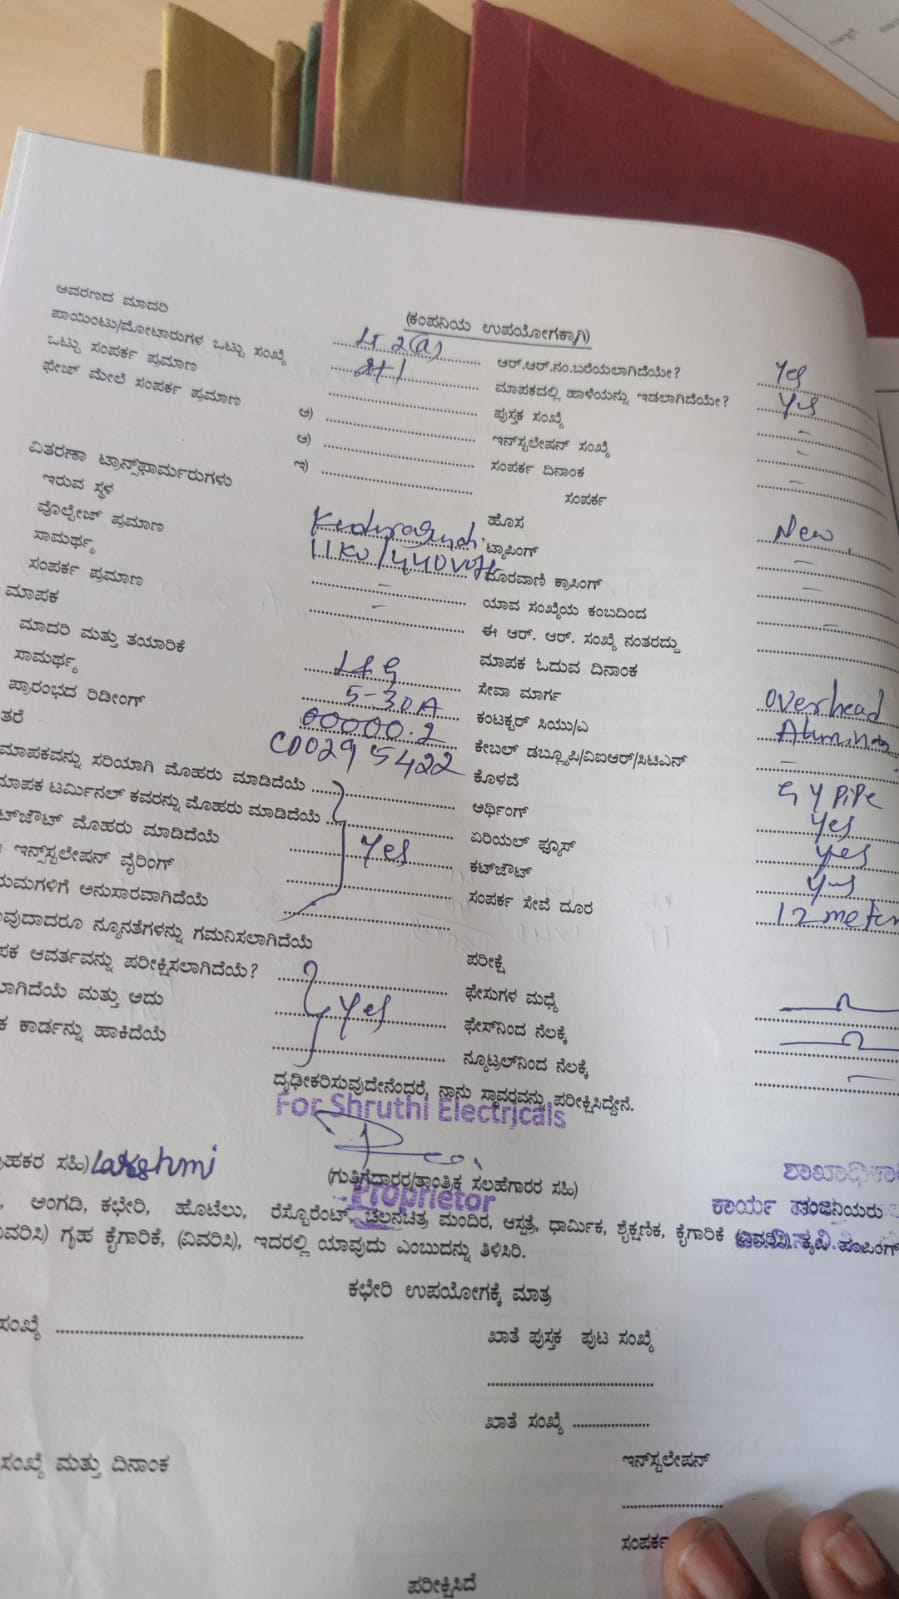 (ಕಂಪನಿಯ ಉಪಯೋಗಕ್ಕಾಗಿ)
ಆವರಣದ ಮಾದರಿ LT 2(a) ಆರ್.ಆರ್.ನಂ.ಬರೆಯಲಾಗಿದೆಯೇ? Yes
ಪಾಯಿಂಟು/ಮೋಟಾರುಗಳ ಒಟ್ಟು ಸಂಖ್ಯೆ 2+1 ಮಾಪಕದಲ್ಲಿ ಹಾಳೆಯನ್ನು ಇಡಲಾಗಿದೆಯೇ? Yes
ಒಟ್ಟು ಸಂಪರ್ಕ ಪ್ರಮಾಣ ಪುಸ್ತಕ ಸಂಖ್ಯೆ -
ಫೇಜ್ ಮೇಲೆ ಸಂಪರ್ಕ ಪ್ರಮಾಣ ಅ) ಇನ್‌ಸ್ಟಲೇಷನ್ ಸಂಖ್ಯೆ -
ಆ) ಸಂಪರ್ಕ ದಿನಾಂಕ -
ಇ) ಸಂಪರ್ಕ
ವಿತರಣಾ ಟ್ರಾನ್ಸ್‌ಫಾರ್ಮರುಗಳು ಹೊಸ New
ಇರುವ ಸ್ಥಳ ಟ್ಯಾಪಿಂಗ್ -
ವೋಲ್ಟೇಜ್ ಪ್ರಮಾಣ 11KV/440Volt ದೂರವಾಣಿ ಕ್ರಾಸಿಂಗ್ -
ಸಾಮರ್ಥ್ಯ - ಯಾವ ಸಂಖ್ಯೆಯ ಕಂಬದಿಂದ
ಸಂಪರ್ಕ ಪ್ರಮಾಣ - ಈ ಆರ್. ಆರ್. ಸಂಖ್ಯೆ ನಂತರದ್ದು -
ಮಾಪಕ ಮಾಪಕ ಓದುವ ದಿನಾಂಕ
ಮಾದರಿ ಮತ್ತು ತಯಾರಿಕೆ L&G ಸೇವಾ ಮಾರ್ಗ overhead
ಸಾಮರ್ಥ್ಯ 5-30A ಕಂಟಕ್ಟರ್ ಸಿಯು/ಎ
ಪ್ರಾರಂಭದ ರಿಡೀಂಗ್ 00000.2 ಕೇಬಲ್ ಡಬ್ಲ್ಯೂಪಿ/ವಿಐಆರ್/ಸಿಟಿಎಸ್ -
ತರೆ C0029 5422 ಕೊಳವೆ G Y PiPe
ಮಾಪಕವನ್ನು ಸರಿಯಾಗಿ ಮೊಹರು ಮಾಡಿದೆಯೆ ಅರ್ಥಿಂಗ್ Yes
ಮಾಪಕ ಟರ್ಮಿನಲ್ ಕವರನ್ನು ಮೊಹರು ಮಾಡಿದೆಯೆ ಏರಿಯಲ್ ಫ್ಯೂಸ್ Yes
ಟ್‌ಔಟ್ ಮೊಹರು ಮಾಡಿದೆಯೆ Yes ಕಟ್‌ಔಟ್ Yes
ಇನ್ಸ್‌ಟಲೇಷನ್ ವೈರಿಂಗ್ ಸಂಪರ್ಕ ಸೇವೆ ದೂರ 12 meter
ಯಮಗಳಿಗೆ ಅನುಸಾರವಾಗಿದೆಯೆ
ವುದಾದರೂ ನ್ಯೂನತೆಗಳನ್ನು ಗಮನಿಸಲಾಗಿದೆಯೆ ಪರೀಕ್ಷೆ
ಪಕ ಆವರ್ತವನ್ನು ಪರೀಕ್ಷಿಸಲಾಗಿದೆಯೆ? ಫೇಸುಗಳ ಮಧ್ಯೆ
ಲಾಗಿದೆಯೆ ಮತ್ತು ಅದು Yes ಫೇಸ್‌ನಿಂದ ನೆಲಕ್ಕೆ
ಕ ಕಾರ್ಡನ್ನು ಹಾಕಿದೆಯೆ ನ್ಯೂಟ್ರಲ್‌ನಿಂದ ನೆಲಕ್ಕೆ
ದೃಢೀಕರಿಸುವುದೇನೆಂದರೆ, ನಾನು ಸ್ಥಾವರವನ್ನು ಪರೀಕ್ಷಿಸಿದ್ದೇನೆ.
For Shruthi Electricals
ಹಕರ ಸಹಿ) Lakshmi (ಗುತ್ತಿಗೆದಾರರ/ತಾಂತ್ರಿಕ ಸಲಹೆಗಾರರ ಸಹಿ)
Proprietor
ಅಂಗಡಿ, ಕಛೇರಿ, ಹೊಟೆಲು, ರೆಸ್ಟೊರೆಂಟ್, ಚಲನಚಿತ್ರ ಮಂದಿರ, ಆಸ್ಪತ್ರೆ, ಧಾರ್ಮಿಕ, ಶೈಕ್ಷಣಿಕ, ಕೈಗಾರಿಕೆ
ವರಿಸಿ) ಗೃಹ ಕೈಗಾರಿಕೆ, (ವಿವರಿಸಿ), ಇದರಲ್ಲಿ ಯಾವುದು ಎಂಬುದನ್ನು ತಿಳಿಸಿರಿ.
ಕಛೇರಿ ಉಪಯೋಗಕ್ಕೆ ಮಾತ್ರ
ಸಂಖ್ಯೆ ಖಾತೆ ಪುಸ್ತಕ ಪುಟ ಸಂಖ್ಯೆ
ಖಾತೆ ಸಂಖ್ಯೆ
ಸಂಖ್ಯೆ ಮತ್ತು ದಿನಾಂಕ ಇನ್‌ಸ್ಟಲೇಷನ್
ಸಂಪರ್ಕ
ಪರೀಕ್ಷಿಸಿದೆ